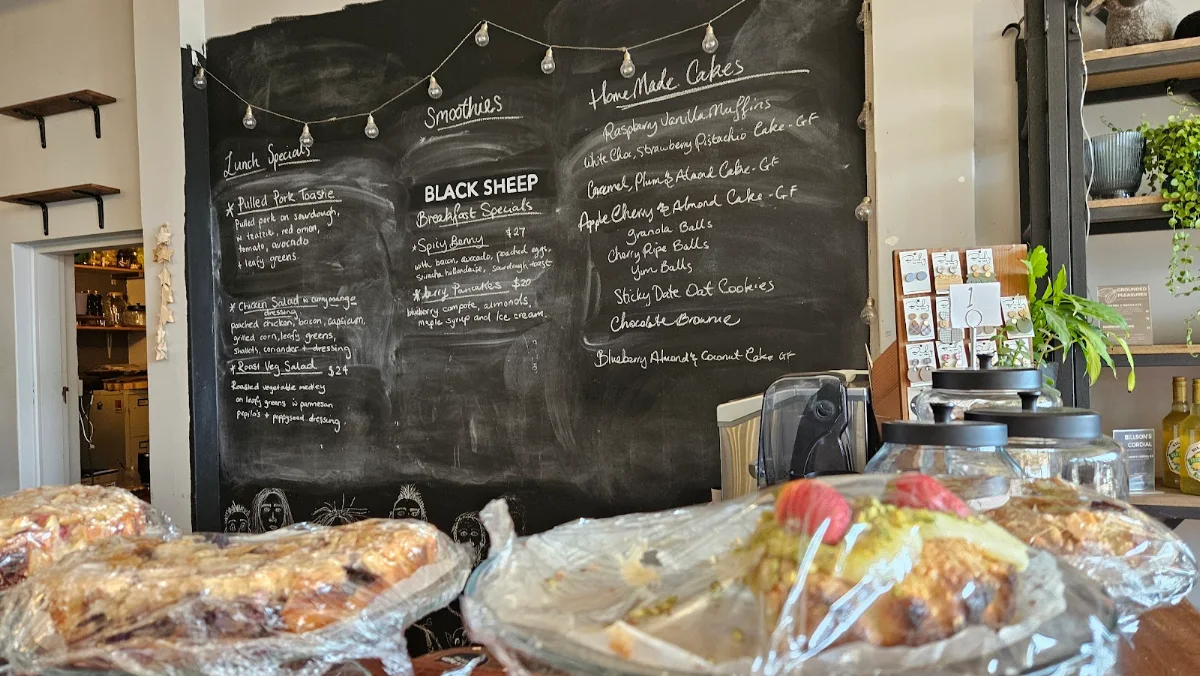 Lunch Specials
* Pulled Pork Toastie
Pulled pork on sourdough,
red onion,
tomato, avocado
+ leafy greens
* Chicken Salad w curry mango
dressing
poached chicken, bacon, capsicum,
grilled corn, leafy greens,
shallots, coriander + dressing
* Roast Veg Salad $24
Roasted vegetable medley
on leafy greens w parmesan
pepita's + poppyseed dressing
Smoothies
BLACK SHEEP
Breakfast Specials
* Spicy Benny $27
with bacon, avocado, poached eggs,
sriracha hollandaise, sourdough toast
* Berry Pancakes $20
blueberry compote, almonds,
maple syrup and ice cream.
HomeMade Cakes
Raspbery Vanilla Muffins
White Choc, Strawberry Pistachio Cake - GF
Caramel, Plum & Almond Cake - GF
Apple Cherry & Almond Cake - GF
Granola Balls
Cherry Ripe Balls
Yum Balls
Sticky Date Oat Cookies
Chocolate Brownie
Blueberry Almond & Coconut Cake GF
GROUNDED
PLEASURES
BILLSON'S
CORDIAL